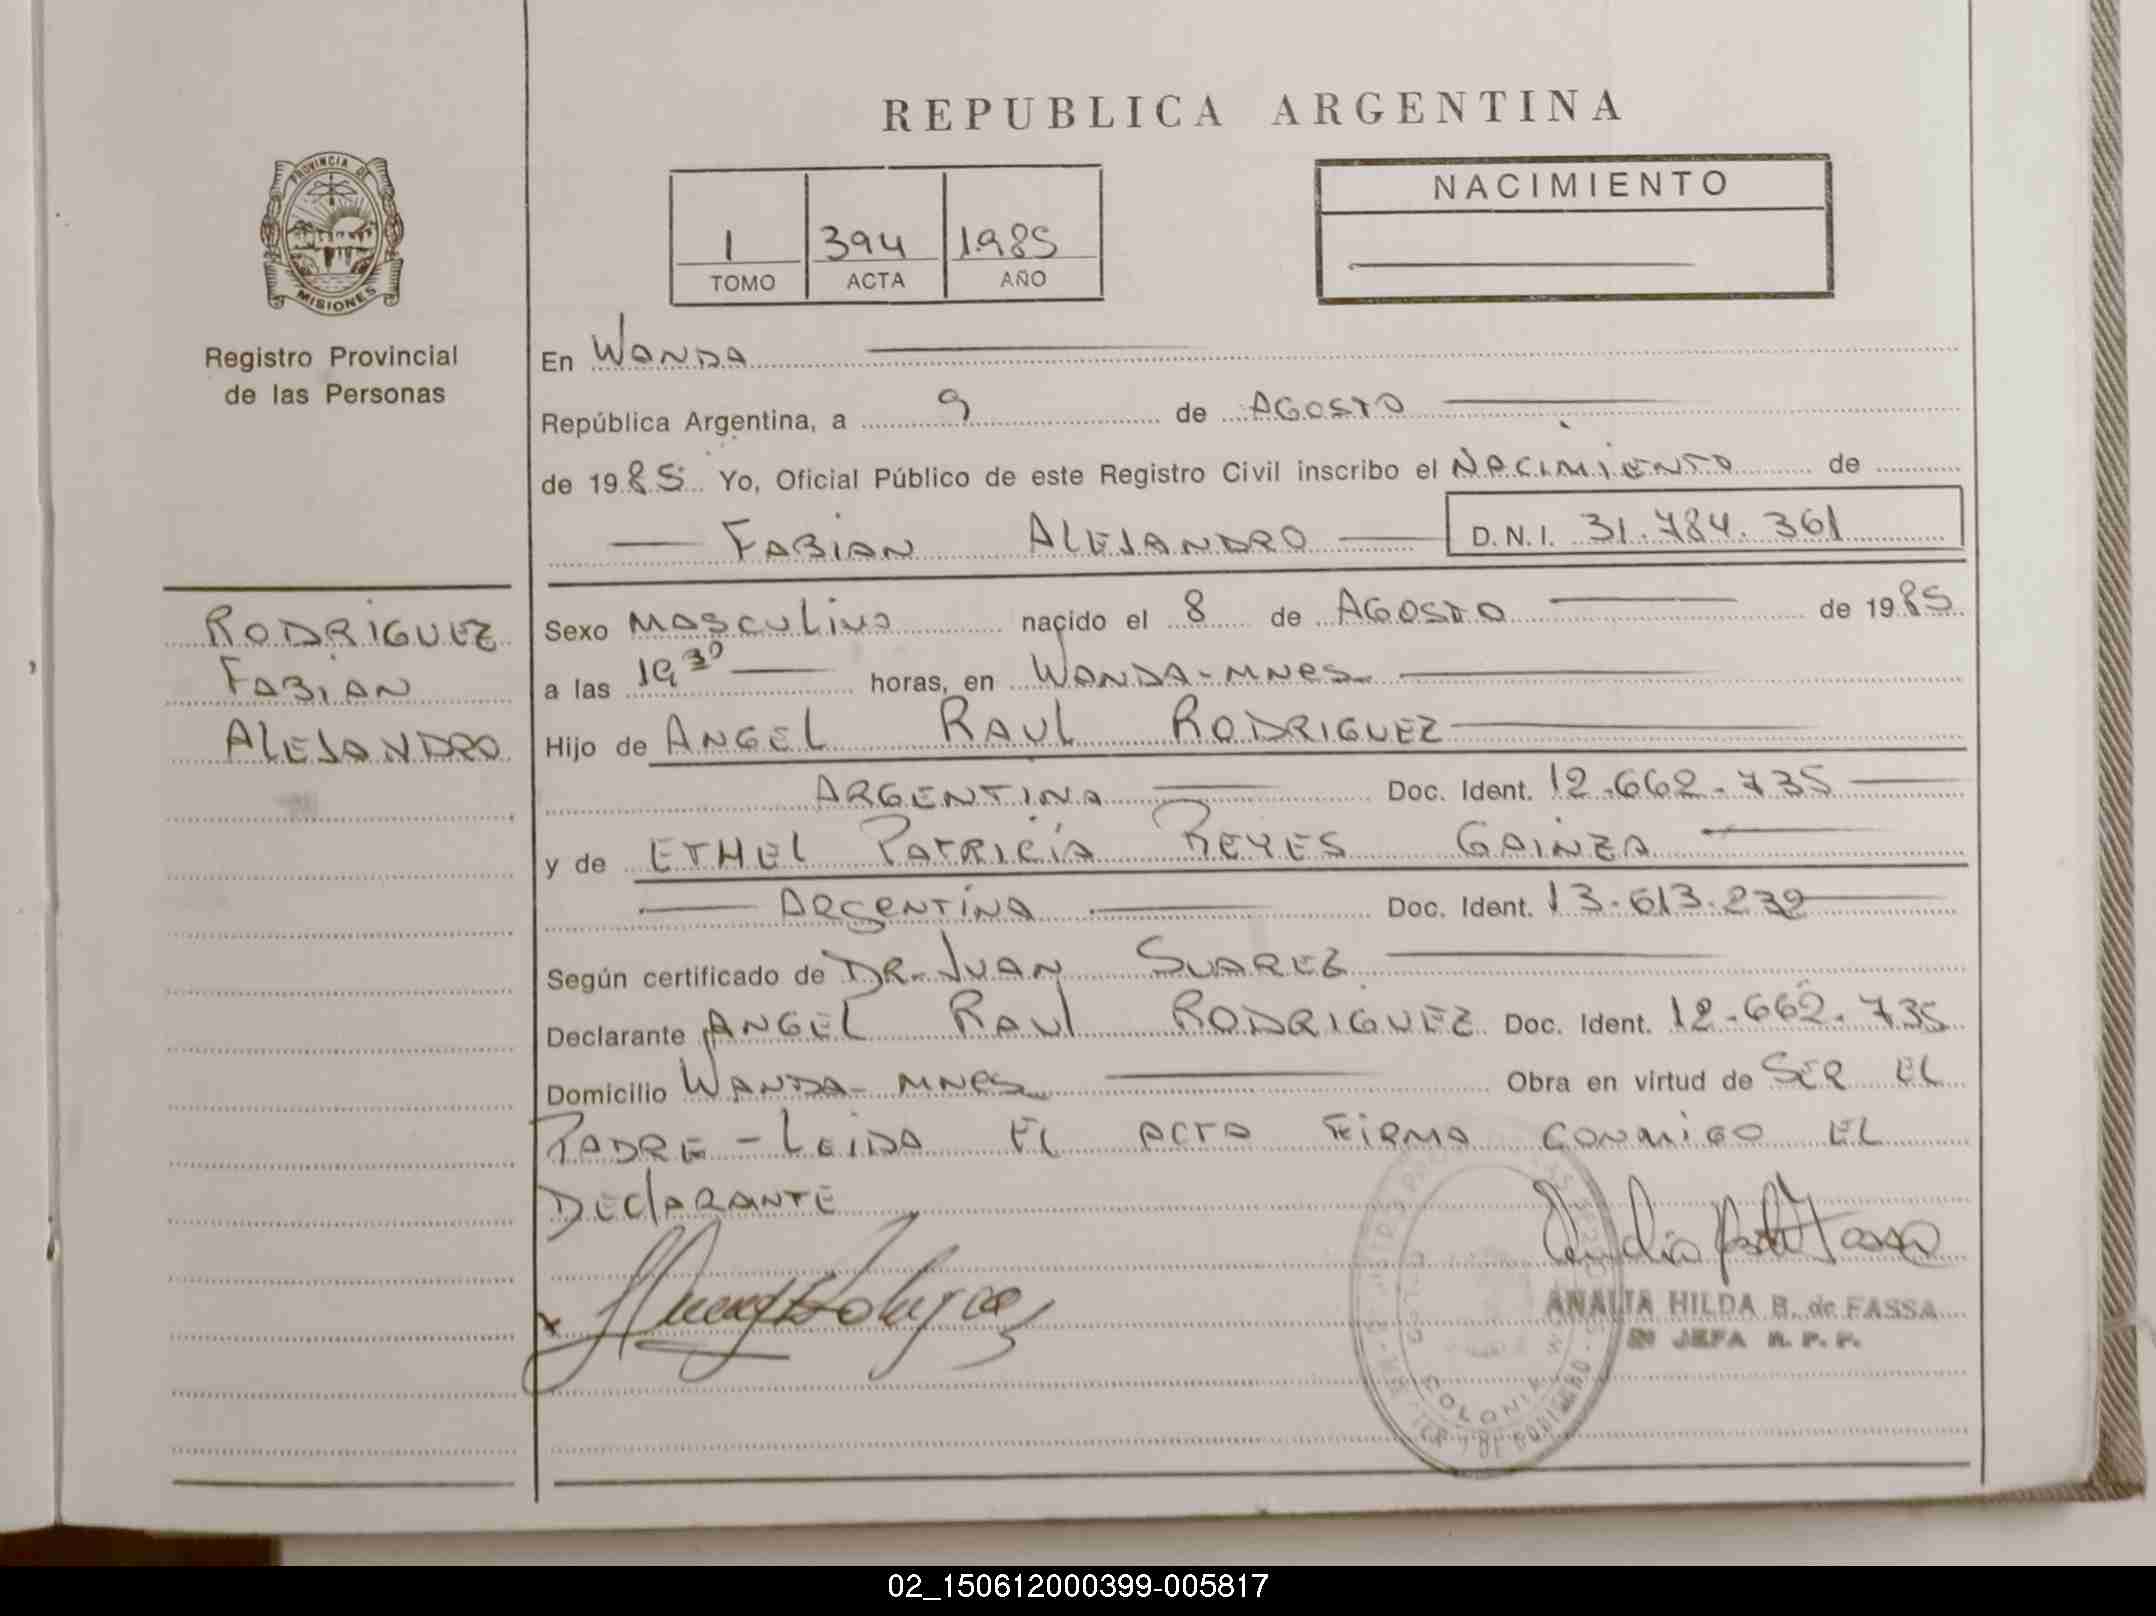 REPUBLICA ARGENTINA
PROVINCIA DE
MISIONES
Registro Provincial
de las Personas
1 394 1985
TOMO ACTA AÑO
NACIMIENTO
En WANDA
República Argentina, a 9 de AGOSTO
de 1985 Yo, Oficial Público de este Registro Civil inscribo el NACIMIENTO de
FABIAN ALEJANDRO D.N.I. 31.784.361
RODRIGUEZ
FABIAN
ALEJANDRO
Sexo MASCULINO nacido el 8 de AGOSTO de 1985
a las 19 30 horas, en WANDA-MNES
Hijo de ANGEL RAUL RODRIGUEZ
ARGENTINA Doc. Ident. 12.662.735
y de ETHEL PATRICIA REYES GAINZA
ARGENTINA Doc. Ident. 13.613.232
Según certificado de DR. JUAN SUAREZ
Declarante ANGEL RAUL RODRIGUEZ Doc. Ident. 12.662.735
Domicilio WANDA-MNES Obra en virtud de SER EL
PADRE - LEIDA EL ACTA FIRMA CONMIGO EL
DECLARANTE
ANALIA HILDA B. de FASSA
JEFA R. P. P.
COLONIA
02_150612000399-005817